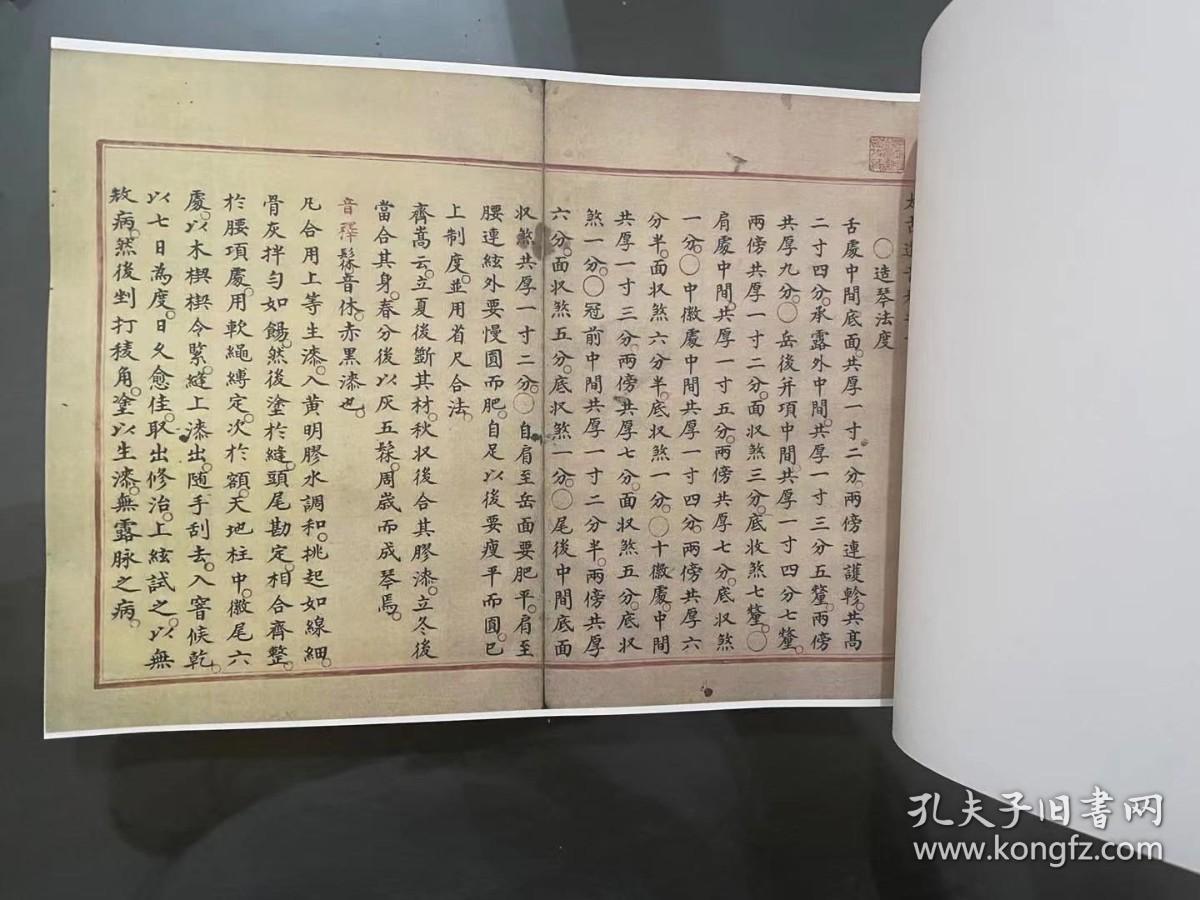 ○造琴法度
舌處中間底面共厚一寸二分兩傍連護軫共高
二寸四分承露外中間共厚一寸三分五釐兩傍
共厚九分○岳後并項中間共厚一寸四分七釐
兩傍共厚一寸二分面収煞三分底收煞七釐○
肩處中間共厚一寸五分兩傍共厚七分底収煞
一分○中徽處中間共厚一寸四分兩傍共厚六
分半面収煞六分半底収煞一分○十徽處中間
共厚一寸三分兩傍共厚七分面収煞五分底収
煞一分○冠前中間共厚一寸二分半兩傍共厚
六分面収煞五分底収煞一分○尾後中間底面
収煞共厚一寸二分○自肩至岳面要肥平肩至
腰連絃外要慢圓而肥自足以後要瘦平而圓已
上制度並用省尺合法
齊嵩云立夏後斷其材秋収後合其膠漆立冬後
當合其身春分後以灰五髹周歲而成琴焉
音釋髹音休赤黑漆也
凡合用上等生漆入黃明膠水調和挑起如線細
骨灰拌勻如餳然後塗於縫頭尾勘定相合齊整
於腰項處用軟繩縛定次於額天地柱中徽尾六
處以木楔楔令緊縫上漆出随手刮去入窨候乾
以七日為度日久愈佳取出修治上絃試之以無
敖病然後剉打稜角塗以生漆無露脉之病
孔夫子旧書网
www.kongfz.com